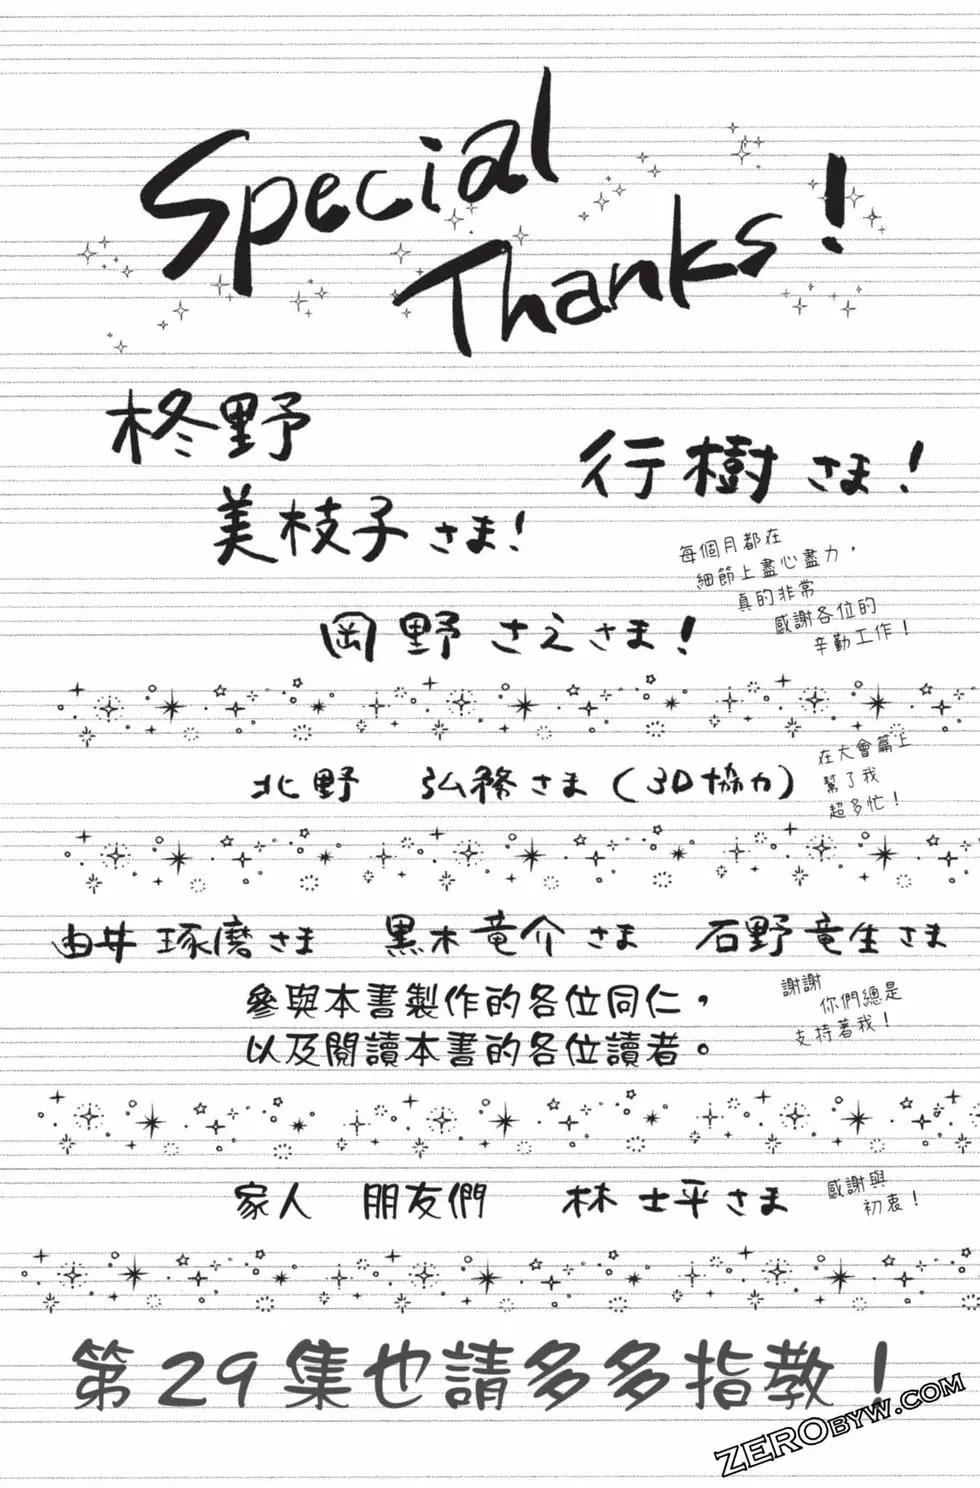 Special
Thanks!
柊野
美枝子さま!
行樹さま!
每個月都在
細節上盡心盡力,
真的非常
感謝各位的
辛勤工作!
岡野 さえさま!
北野 弘務さま(3D協力)
在大會篇上
幫了我
超多忙!
由井 琢磨さま 黒木竜介さま 石野竜生さま
參與本書製作的各位同仁,
以及閱讀本書的各位讀者。
謝謝
你們總是
支持著我!
家人 朋友們 林 士平さま
感謝與
初衷!
第29集也請多多指教!
ZEROBYW.COM